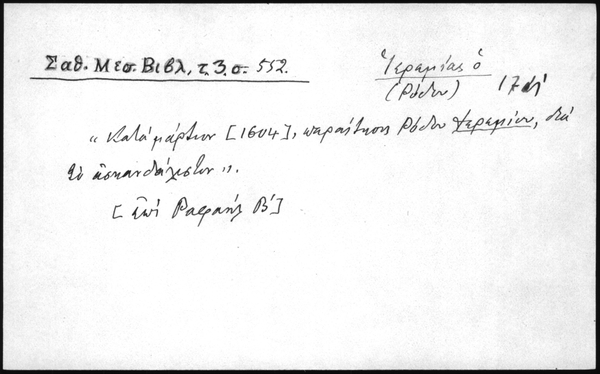 Σαθ. Μεσ. Βιβλ, τ. 3, σ. 552.
Ἱερεμίας ὁ
(Ρόδου) 17
"Κατὰ μάρτιον [1604], παραίτησις Ρόδου Ἱερεμίου, διὰ
τὸ ἀσκανδάλιστον".
[ἐπὶ Ραφαὴλ Β΄]